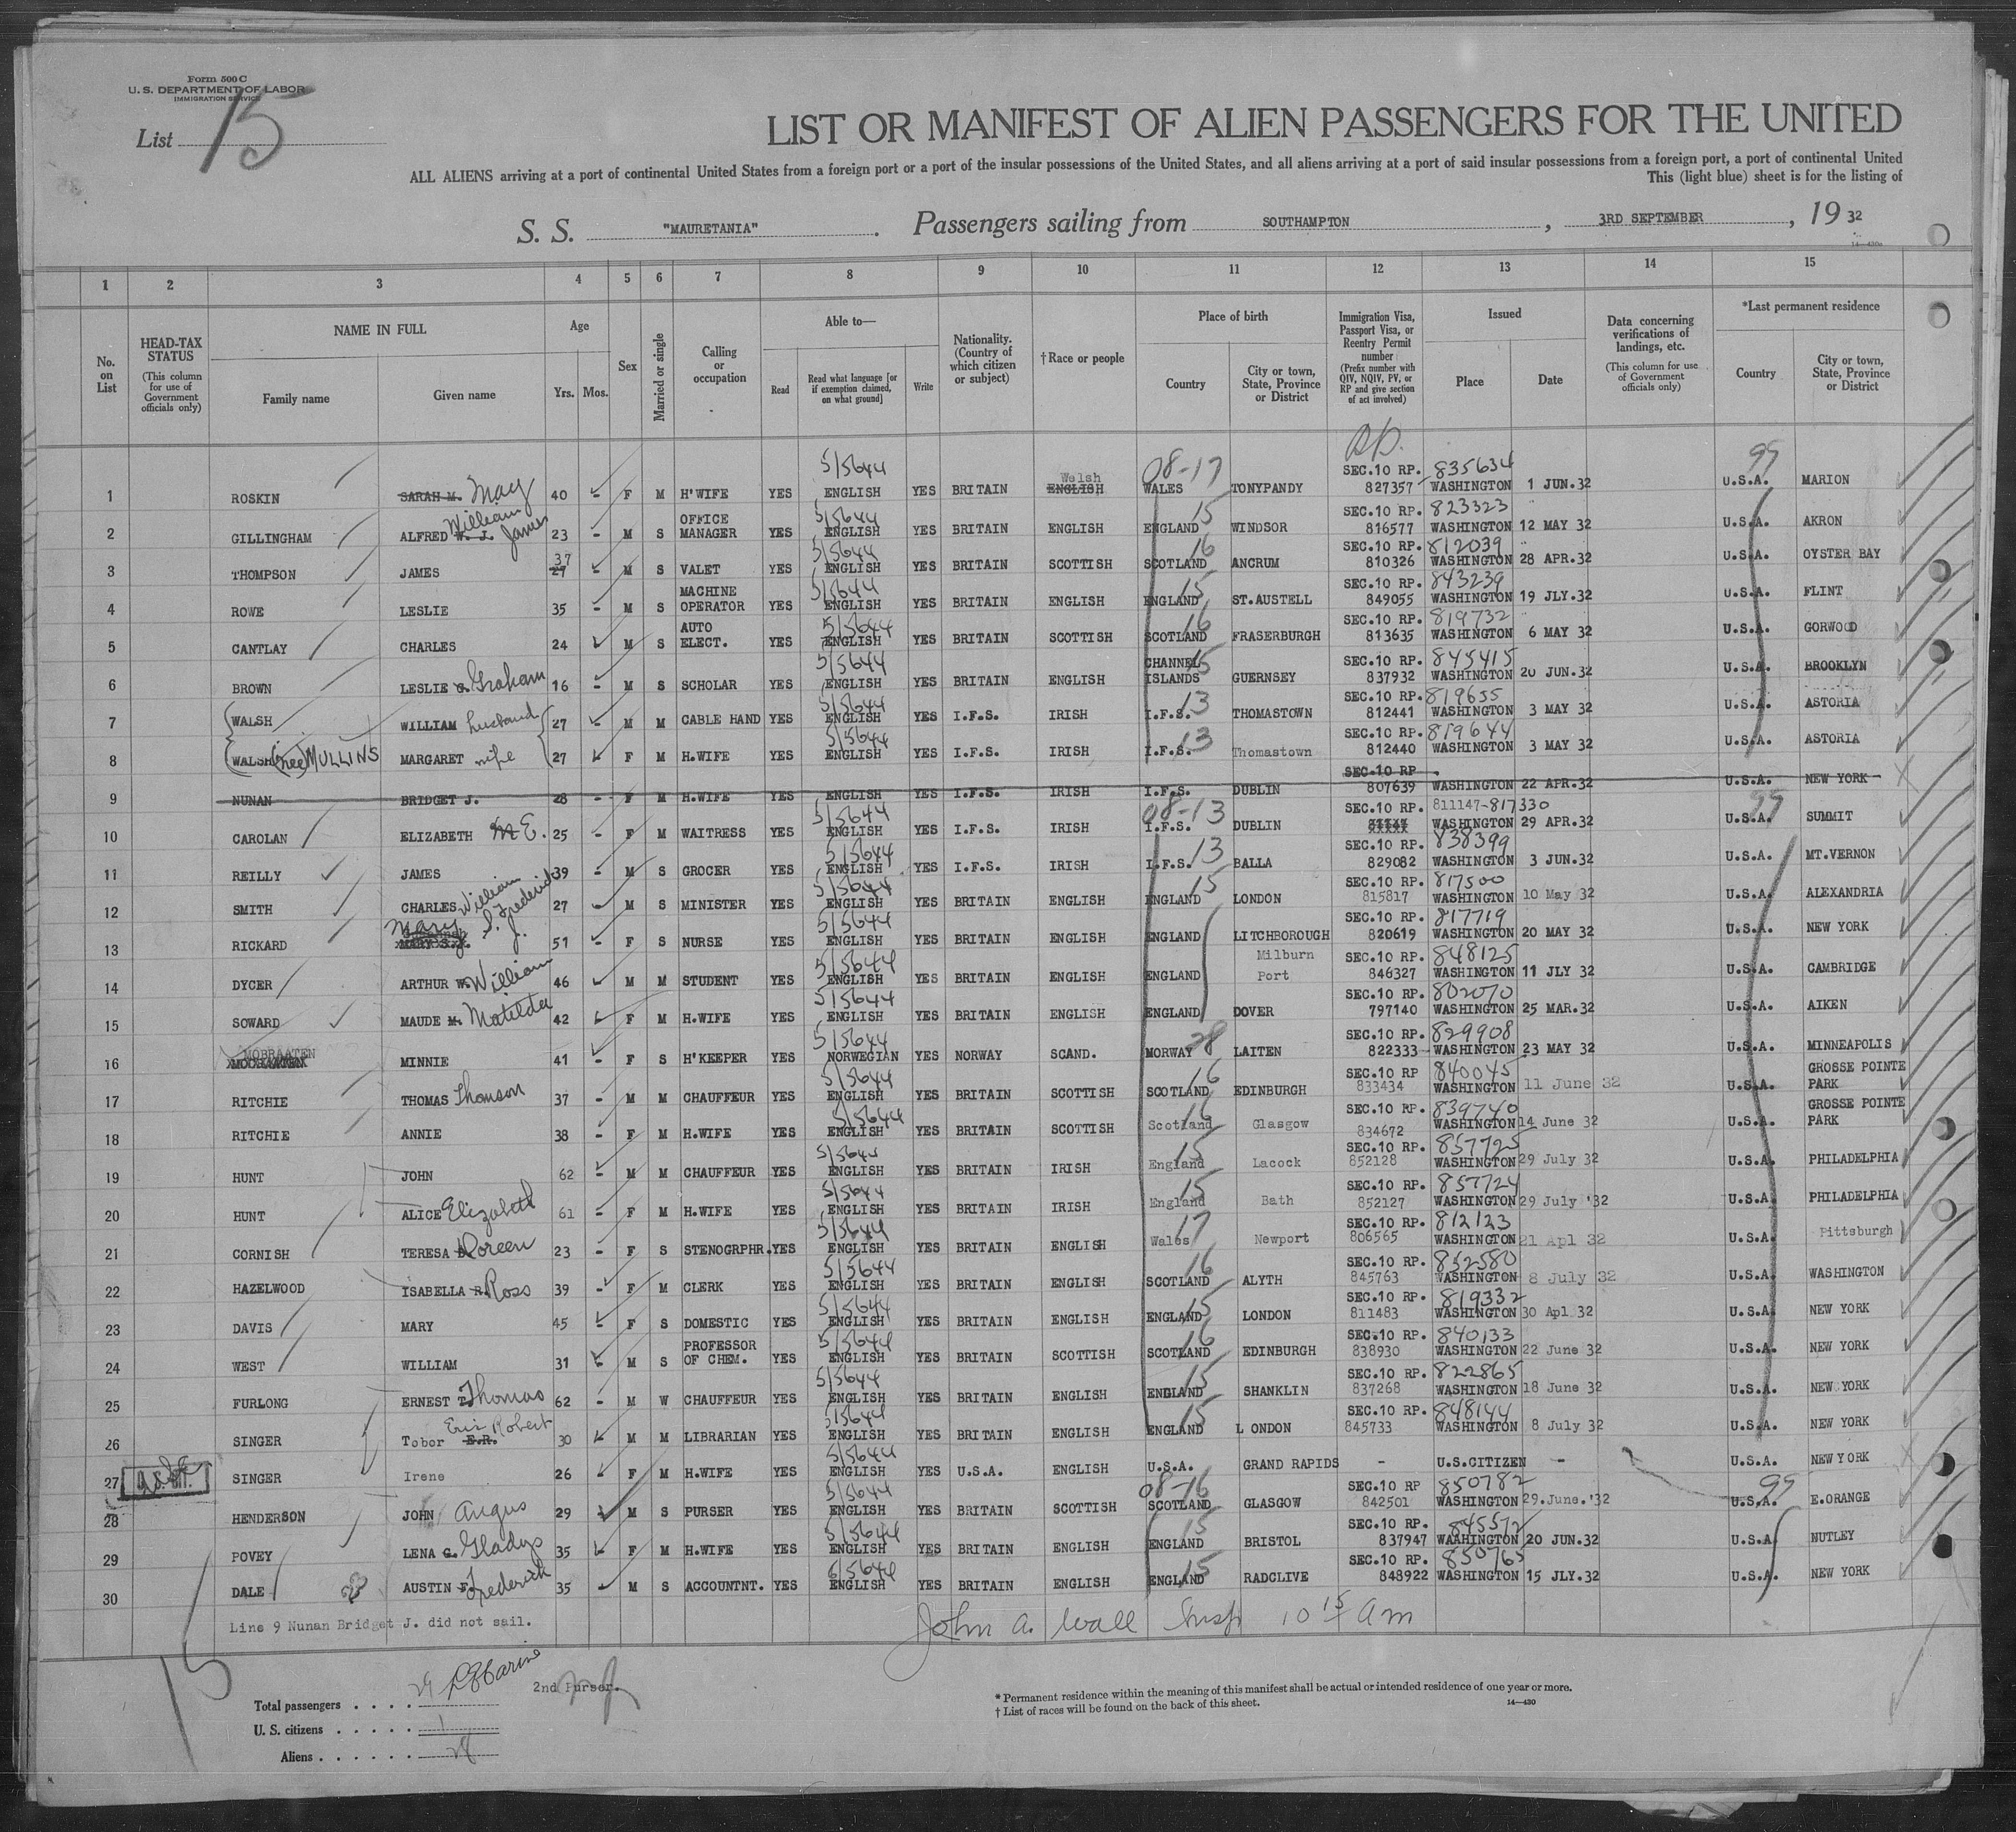 Form 500 C
U. S. DEPARTMENT OF LABOR
IMMIGRATION SERVICE
List 15
LIST OR MANIFEST OF ALIEN PASSENGERS FOR THE UNITED
ALL ALIENS arriving at a port of continental United States from a foreign port or a port of the insular possessions of the United States, and all aliens arriving at a port of said insular possessions from a foreign port, a port of continental United
This (light blue) sheet is for the listing of
S. S. "MAURETANIA". Passengers sailing from SOUTHAMPTON, 3RD SEPTEMBER, 19 32
14—430a
1 2 3 4 5 6 7 8 9 10 11 12 13 14 15
No. on List
HEAD-TAX STATUS (This column for use of Government officials only)
NAME IN FULL
Family name Given name
Age
Yrs. Mos.
Sex
Married or single
Calling or occupation
Able to—
Read Read what language [or if exemption claimed, on what ground] Write
Nationality. (Country of which citizen or subject)
†Race or people
Place of birth
Country City or town, State, Province or District
Immigration Visa, Passport Visa, or Reentry Permit number (Prefix number with QIV, NQIV, PV, or RP and give section of act involved)
Issued
Place Date
Data concerning verifications of landings, etc. (This column for use of Government officials only)
*Last permanent residence
Country City or town, State, Province or District
1 ROSKIN SARAH M. May 40 - F M H'WIFE YES 5/5644 ENGLISH YES BRITAIN ENGLISH Welsh 08-17 WALES TONYPANDY SEC.10 RP. 827357 835634 WASHINGTON 1 JUN.32 99 U.S.A. MARION
2 GILLINGHAM ALFRED W. J. William James 23 - M S OFFICE MANAGER YES 5/5644 ENGLISH YES BRITAIN ENGLISH 15 ENGLAND WINDSOR SEC.10 RP. 816577 823323 WASHINGTON 12 MAY 32 U.S.A. AKRON
3 THOMPSON JAMES 27 37 - M S VALET YES 5/5644 ENGLISH YES BRITAIN SCOTTISH 16 SCOTLAND ANCRUM SEC.10 RP. 810326 812039 WASHINGTON 28 APR.32 U.S.A. OYSTER BAY
4 ROWE LESLIE 35 - M S MACHINE OPERATOR YES 5/5644 ENGLISH YES BRITAIN ENGLISH 15 ENGLAND ST.AUSTELL SEC.10 RP. 849055 843239 WASHINGTON 19 JLY.32 U.S.A. FLINT
5 CANTLAY CHARLES 24 M S AUTO ELECT. YES 5/5644 ENGLISH YES BRITAIN SCOTTISH 16 SCOTLAND FRASERBURGH SEC.10 RP. 813635 819732 WASHINGTON 6 MAY 32 U.S.A. GORWOOD
6 BROWN LESLIE G. Graham 16 - M S SCHOLAR YES 5/5644 ENGLISH YES BRITAIN ENGLISH 15 CHANNEL ISLANDS GUERNSEY SEC.10 RP. 837932 845415 WASHINGTON 20 JUN.32 U.S.A. BROOKLYN
7 WALSH WILLIAM husband 27 - M M CABLE HAND YES 5/5644 ENGLISH YES I.F.S. IRISH 13 I.F.S. THOMASTOWN SEC.10 RP. 812441 819655 WASHINGTON 3 MAY 32 U.S.A. ASTORIA
8 WALSH (nee) MULLINS MARGARET wife 27 F M H.WIFE YES 5/5644 ENGLISH YES I.F.S. IRISH 13 I.F.S. Thomastown SEC.10 RP. 812440 819644 WASHINGTON 3 MAY 32 U.S.A. ASTORIA
9 NUNAN BRIDGET J. 28 - F M H.WIFE YES ENGLISH YES I.F.S. IRISH I.F.S. DUBLIN SEC.10 RP 807639 WASHINGTON 22 APR.32 U.S.A. NEW YORK
10 CAROLAN ELIZABETH M E. 25 - F M WAITRESS YES 5/5644 ENGLISH YES I.F.S. IRISH 08-13 I.F.S. DUBLIN SEC.10 RP. 811147-817330 WASHINGTON 29 APR.32 99 U.S.A. SUMMIT
11 REILLY JAMES 39 - M S GROCER YES 5/5644 ENGLISH YES I.F.S. IRISH 13 I.F.S. BALLA SEC.10 RP. 829082 838399 WASHINGTON 3 JUN.32 U.S.A. MT.VERNON
12 SMITH CHARLES William Frederick 27 M S MINISTER YES 5/5644 ENGLISH YES BRITAIN ENGLISH 15 ENGLAND LONDON SEC.10 RP. 815817 817500 WASHINGTON 10 May 32 U.S.A. ALEXANDRIA
13 RICKARD Mary S. J. 51 - F S NURSE YES 5/5644 ENGLISH YES BRITAIN ENGLISH ENGLAND LITCHBOROUGH SEC.10 RP. 820619 817719 WASHINGTON 20 MAY 32 U.S.A. NEW YORK
14 DYCER ARTHUR W. William 46 M M STUDENT YES 5/5644 ENGLISH YES BRITAIN ENGLISH ENGLAND Milburn Port SEC.10 RP. 846327 848125 WASHINGTON 11 JLY 32 U.S.A. CAMBRIDGE
15 SOWARD MAUDE M. Matilda 42 F M H.WIFE YES 5/5644 ENGLISH YES BRITAIN ENGLISH ENGLAND DOVER SEC.10 RP. 797140 802070 WASHINGTON 25 MAR.32 U.S.A. AIKEN
16 MOBRAATEN MINNIE 41 - F S H'KEEPER YES 5/5644 NORWEGIAN YES NORWAY SCAND. 28 MORWAY LAITEN SEC.10 RP. 822333 829908 WASHINGTON 23 MAY 32 U.S.A. MINNEAPOLIS
17 RITCHIE THOMAS Thomson 37 - M M CHAUFFEUR YES 5/5644 ENGLISH YES BRITAIN SCOTTISH 16 SCOTLAND EDINBURGH SEC.10 RP 833434 840045 WASHINGTON 11 June 32 U.S.A. GROSSE POINTE PARK
18 RITCHIE ANNIE 38 - F M H.WIFE YES 5/5644 ENGLISH YES BRITAIN SCOTTISH 16 Scotland Glasgow SEC.10 RP. 834672 839740 WASHINGTON 14 June 32 U.S.A. GROSSE POINTE PARK
19 HUNT JOHN 62 - M M CHAUFFEUR YES 5/5644 ENGLISH YES BRITAIN IRISH 15 England Lacock SEC.10 RP. 852128 857725 WASHINGTON 29 July 32 U.S.A. PHILADELPHIA
20 HUNT ALICE Elizabeth 61 - F M H.WIFE YES 5/5644 ENGLISH YES BRITAIN IRISH 15 England Bath SEC.10 RP. 852127 857724 WASHINGTON 29 July '32 U.S.A. PHILADELPHIA
21 CORNISH TERESA Doreen 23 - F S STENOGRPHR. YES 5/5644 ENGLISH YES BRITAIN ENGLISH 17 Wales Newport SEC.10 RP. 806565 812123 WASHINGTON 21 Apl 32 U.S.A. Pittsburgh
22 HAZELWOOD ISABELLA R. Ross 39 - F M CLERK YES 5/5644 ENGLISH YES BRITAIN ENGLISH 16 SCOTLAND ALYTH SEC.10 RP. 845763 852580 WASHINGTON 8 July 32 U.S.A. WASHINGTON
23 DAVIS MARY 45 - F S DOMESTIC YES 5/5644 ENGLISH YES BRITAIN ENGLISH 15 ENGLAND LONDON SEC.10 RP. 811483 819332 WASHINGTON 30 Apl 32 U.S.A. NEW YORK
24 WEST WILLIAM 31 M S PROFESSOR OF CHEM. YES 5/5644 ENGLISH YES BRITAIN SCOTTISH 16 SCOTLAND EDINBURGH SEC.10 RP. 838930 840133 WASHINGTON 22 June 32 U.S.A. NEW YORK
25 FURLONG ERNEST T. Thomas 62 - M W CHAUFFEUR YES 5/5644 ENGLISH YES BRITAIN ENGLISH 15 ENGLAND SHANKLIN SEC.10 RP. 837268 822865 WASHINGTON 18 June 32 U.S.A. NEW YORK
26 SINGER Tobor E.R. Eric Robert 30 M M LIBRARIAN YES 5/5644 ENGLISH YES BRITAIN ENGLISH 15 ENGLAND L ONDON SEC.10 RP. 845733 848144 WASHINGTON 8 July 32 U.S.A. NEW YORK
27 SINGER Irene 26 - F M H.WIFE YES 5/5644 ENGLISH YES U.S.A. ENGLISH U.S.A. GRAND RAPIDS - U.S.CITIZEN - U.S.A. NEW YORK
28 HENDERSON JOHN Angus 29 M S PURSER YES 5/5644 ENGLISH YES BRITAIN SCOTTISH 08-16 SCOTLAND GLASGOW SEC.10 RP 842501 850782 WASHINGTON 29.June.'32 99 U.S.A. E.ORANGE
29 POVEY LENA G. Gladys 35 F M H.WIFE YES 5/5644 ENGLISH YES BRITAIN ENGLISH 15 ENGLAND BRISTOL SEC.10 RP. 837947 845572 WAAHINGTON 20 JUN.32 U.S.A. NUTLEY
30 DALE AUSTIN F. Frederick 35 M S ACCOUNTNT. YES 5/5644 ENGLISH YES BRITAIN ENGLISH 15 ENGLAND RADCLIVE SEC.10 RP. 848922 850765 WASHINGTON 15 JLY.32 U.S.A. NEW YORK
Line 9 Nunan Bridget J. did not sail.
John A. Wall Insp 10 15 am
15
2nd Purser.
Total passengers . . . . 29
U. S. citizens . . . . . 1
Aliens . . . . . . 28
* Permanent residence within the meaning of this manifest shall be actual or intended residence of one year or more.
† List of races will be found on the back of this sheet.
14—430